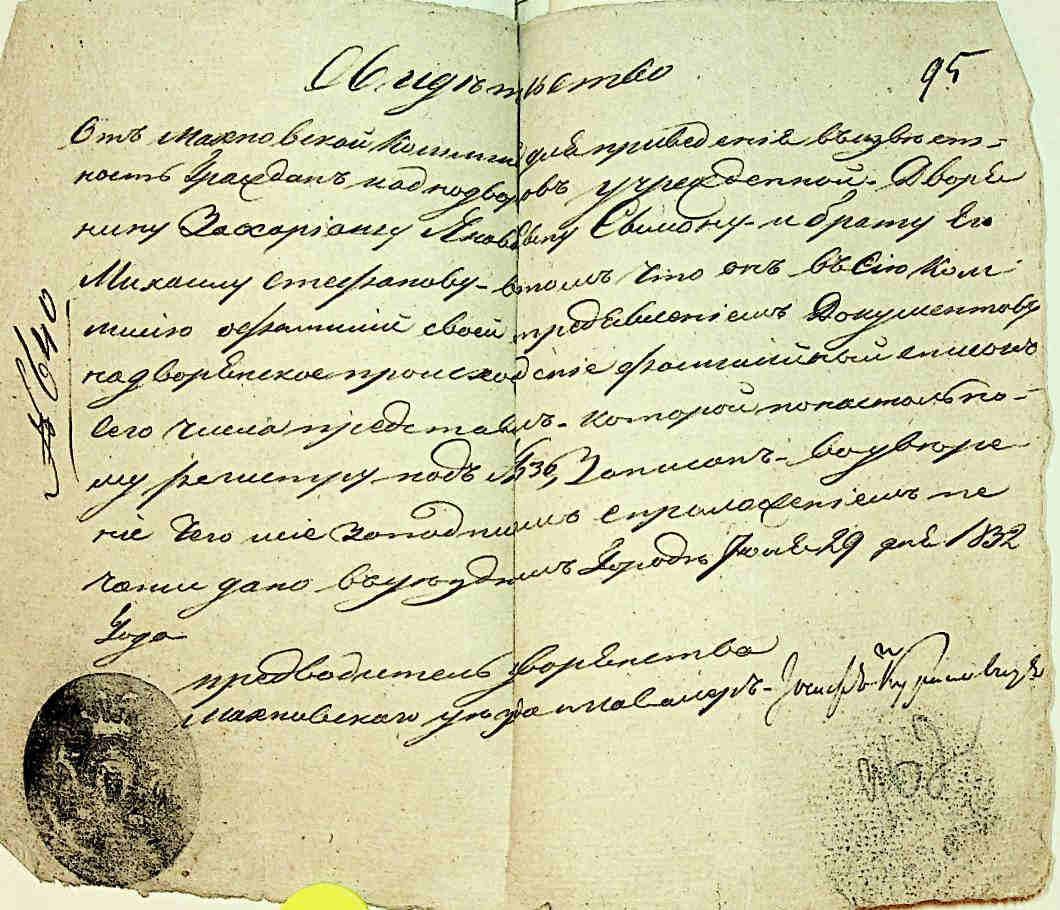 Свидѣтельство
95
Отъ Махновской Комисии для приведенія въ извѣст-
ность Граждан и однодворцовъ учрежденной - Дворя
нину Захаріашу Яковлеву сыну - и брату Его
Михаилу Стефанову - втомъ что онъ въ Сію Ком
мисію офамиліи своей предъявленіемъ Документовъ
на дворянское происхожденіе фамилійный списокъ
сего числа представилъ - которой по настольно-
му регистру подъ № 36, Записанъ - воудвюре
ніе Чего сіе Заподписомъ сприложеніемъ пе
чати дано въ уѣздномъ Городѣ Июля 29 дня 1832
Года
предводитель дворянства
Махновскаго уѣзда и кавалеръ -
№ 640